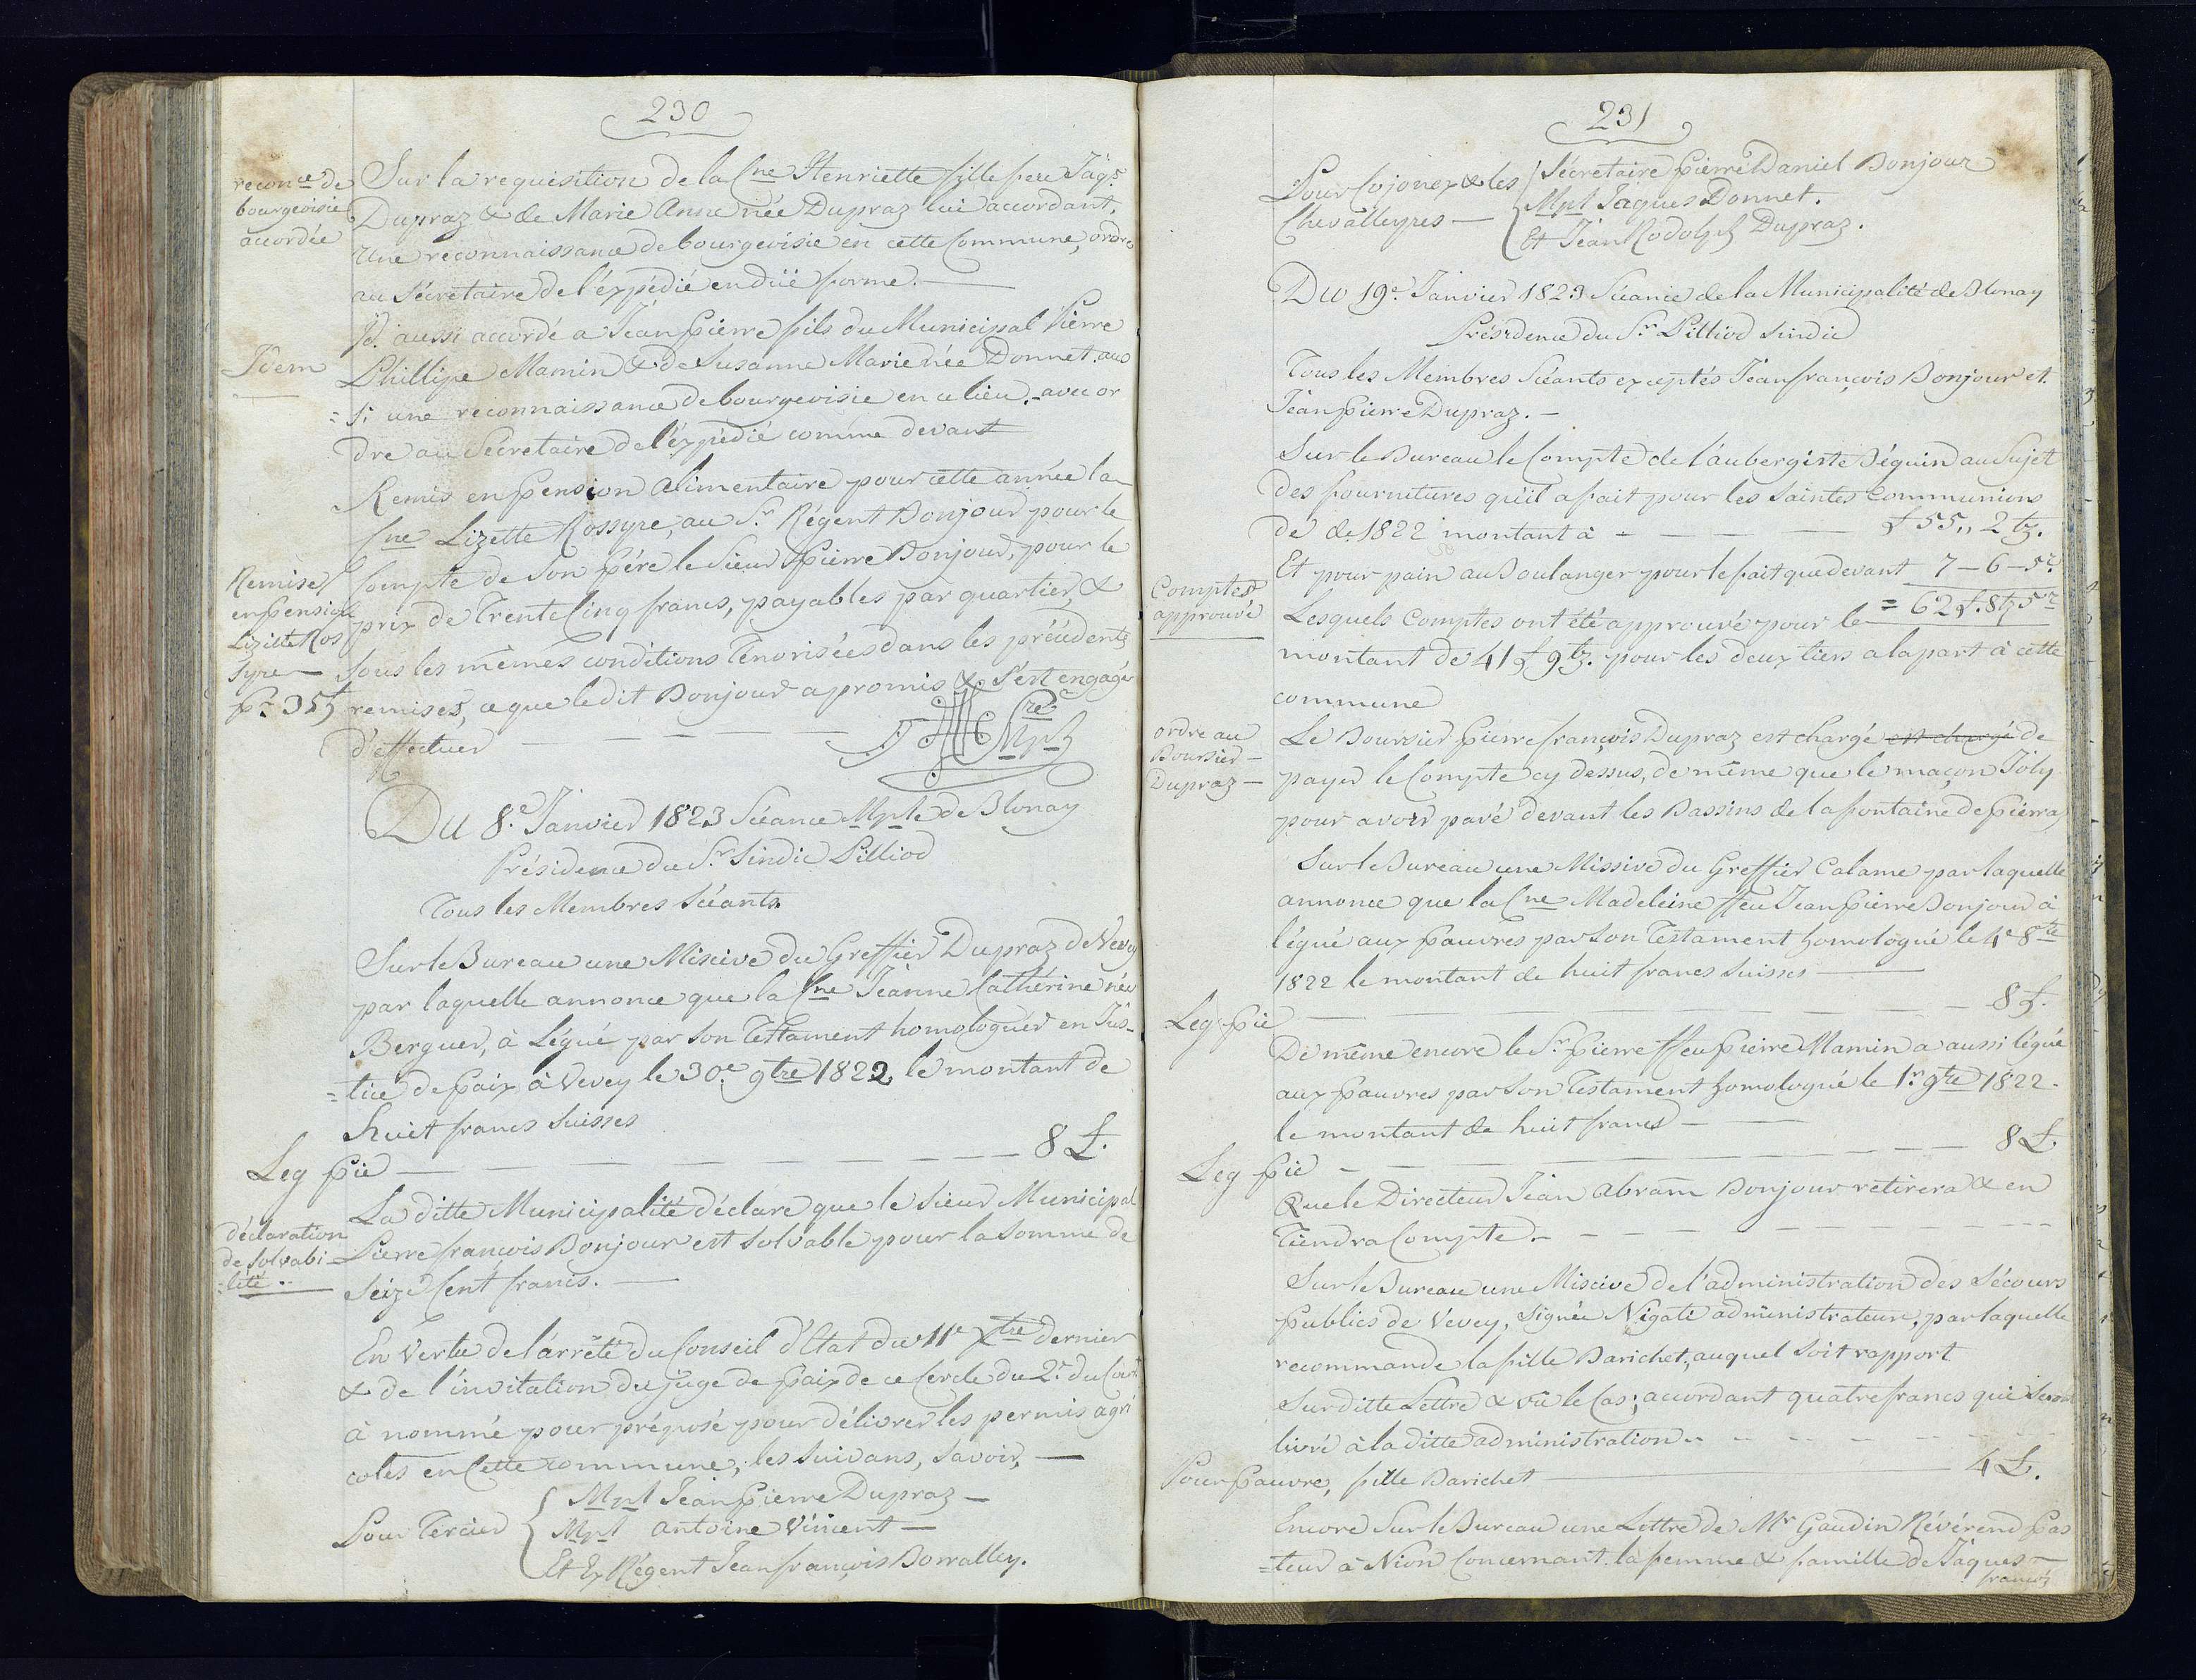 230
reconce de
bourgeoisie
accordée
Sur la requisition de la Cne Henriette ffille feu Jaqs
Dupraz & de Marie Anne née Dupraz lui accordant,
Une reconnaissance de bourgeoisie en cette Commune, ordre
au Sécretaire de l'éxpédié en düe forme. —
Idem
Id. aussi accordé a Jean Pierre fils du Municipal Pierre
Phillipe Mamin & de Susanne Marie née Donnet. aus
= si une reconnaissance de bourgeoisie en ce lieu, - avec or
dre au Sécretaire de l'éxpédié comme devant
Remise
en pension
Lizette Ros
syre —
pr. 35 f
Remis en pension alimentaire pour cette année la
Cne Lizette Rossyre, au Sr. Régent Bonjour pour le
Compte de son père le Sieur Pierre Bonjour, pour le
prix de Trente Cinq francs, payables par quartier, &
Sous les mêmes conditions Tenorisées dans les précédents
remises, ce que le dit Bonjour a promis & s'est engagé
d'effectuer — — — — —
Du 8e. Janvier 1823 Séance Mple de Blonay
Présidence du Sr. Sindic Pilliod
Tous les Membres Séants.
Sur le Bureau une Miscive du Greffier Dupraz de Vevey
par laquelle annonce que la Cne Jeanne Cathérine née
Berguer, à Légué par son Testament homologuer en Jus-
= tice de paix à Vevey le 30e. 9tre 1822 le montant de
huit francs Suisses
Leg pie — — — — — — — — 8 £.
déclaration
de Solvabi-
-lité..
La ditte Municipalité déclare que le Sieur Municipal
Pierre françois Bonjour est Solvable pour la Somme de
Seize Cent francs. —
En Vertu de l'arrêté du Conseil d'Etat du 11e Xtre dernier
& de l'invitation du juge de paix de ce Cercle du 2e. du Cout
à nommé pour préposé pour délivrer les permis agri
coles en Cette commune, les Suivans, Savoir, —
Pour Tercier
Mpl Jean Pierre Dupraz —
Mpl Antoine Vincent —
Et Ex Régent Jean françois Borralley.
231
Pour Cojonex & les
Chevalleyres —
Sécretaire Pierre Daniel Bonjour
Mpl Jaques Donnet.
Et Jean Rodolph Dupraz.
Du 19e. Janvier 1823 Séance de la Municipalité de Blonay
Présidence du Sr. Pilliod Sindic
Tous les Membres Séants exceptés Jean françois Bonjour et
Jean Pierre Dupraz. —
Sur le Bureau le Compte de l'aubergiste Béguin au Sujet
des fournitures qu'il a fait pour les Saintes Communions
de de 1822 montant à - — — — £ 55,, 2 bz.
Et pour pain au Boulanger pour le fait que devant 7 - 6 - 5r.
Comptes
approuvé
= 62 £. 8 bz 5r
Lesquels Comptes ont été approuvé pour le
montant de 41 £ 9 bz. pour les deux tiers a la part à cette
commune
ordre au
Boursier —
Dupraz —
Le Boursier Pierre françois Dupraz est chargé est chargé de
payer le Compte cy dessus, de même que le maçon Joly
pour avoir pavé devant les Bassins de la fontaine de Pierraz
Sur le Bureau une Missive du Greffier Calame par laquelle
annonce que la Cne Madeleine ffeu Jean Pierre Bonjour à
légué aux pauvres par son Testament homologué le 4e 8tre
1822 le montant de huit francs Suisses —
Leg pie — — — — — — 8 £.
De même encore le Sr. Pierre ffeu Pierre Mamin a aussi légué
aux pauvres par son Testament homologué le 1r. 9tre 1822.
le montant de huit francs — —
Leg pie — — — — — — 8 £.
Que le Directeur Jean Abram Bonjour retirera & en
Tiendra Compte. — — —
Sur le Bureau une Miscive de l'administration des Sécours
Publics de Vevey, Signée Nigate administrateur, par laquelle
recommande la fille Barichet, auquel Soit rapport
Sur ditte Lettre & vû le Cas, accordant quatre francs qui Seront
livré à la ditte administration. — — —
Pour Pauvre, fille Barichet — — 4 £.
Encore Sur le Bureau une Lettre de Mr Gaudin Révérend Pas
= teur à Nion Concernant la femme & famille de Jaques —
françois